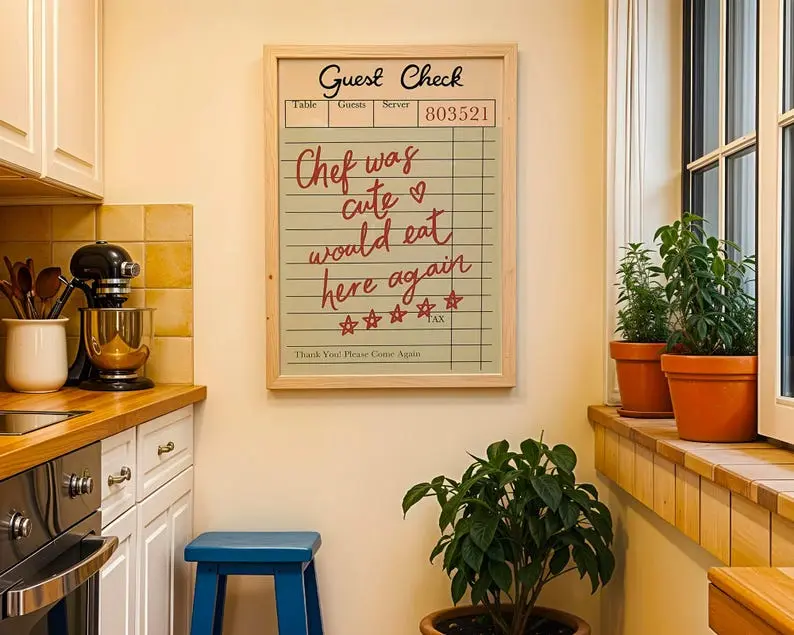 Guest Check
Table Guests Server 803521
Chef was
cute
would eat
here again
TAX
Thank You! Please Come Again